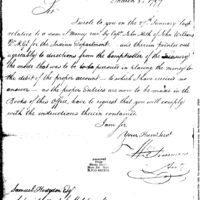 March 8. 1797
Sir
I wrote to you on the 27th January last
relative to a sum of Money recd by Capt John Mills of John Wilkins
for the Indian Department and therein pointed out
agreeably to directions from the Comptroller of the Treasury
the mode that was to be pursued in placing the money to
the debit of the proper account to which I have received no
answer as the proper Entries are now to be made in the
Books of this Office, I have to request that you will comply
with the instructions therein contained.
I am Sir
Your Hum Servt
Wm Simmons
Samuel Hodgdon Esqr